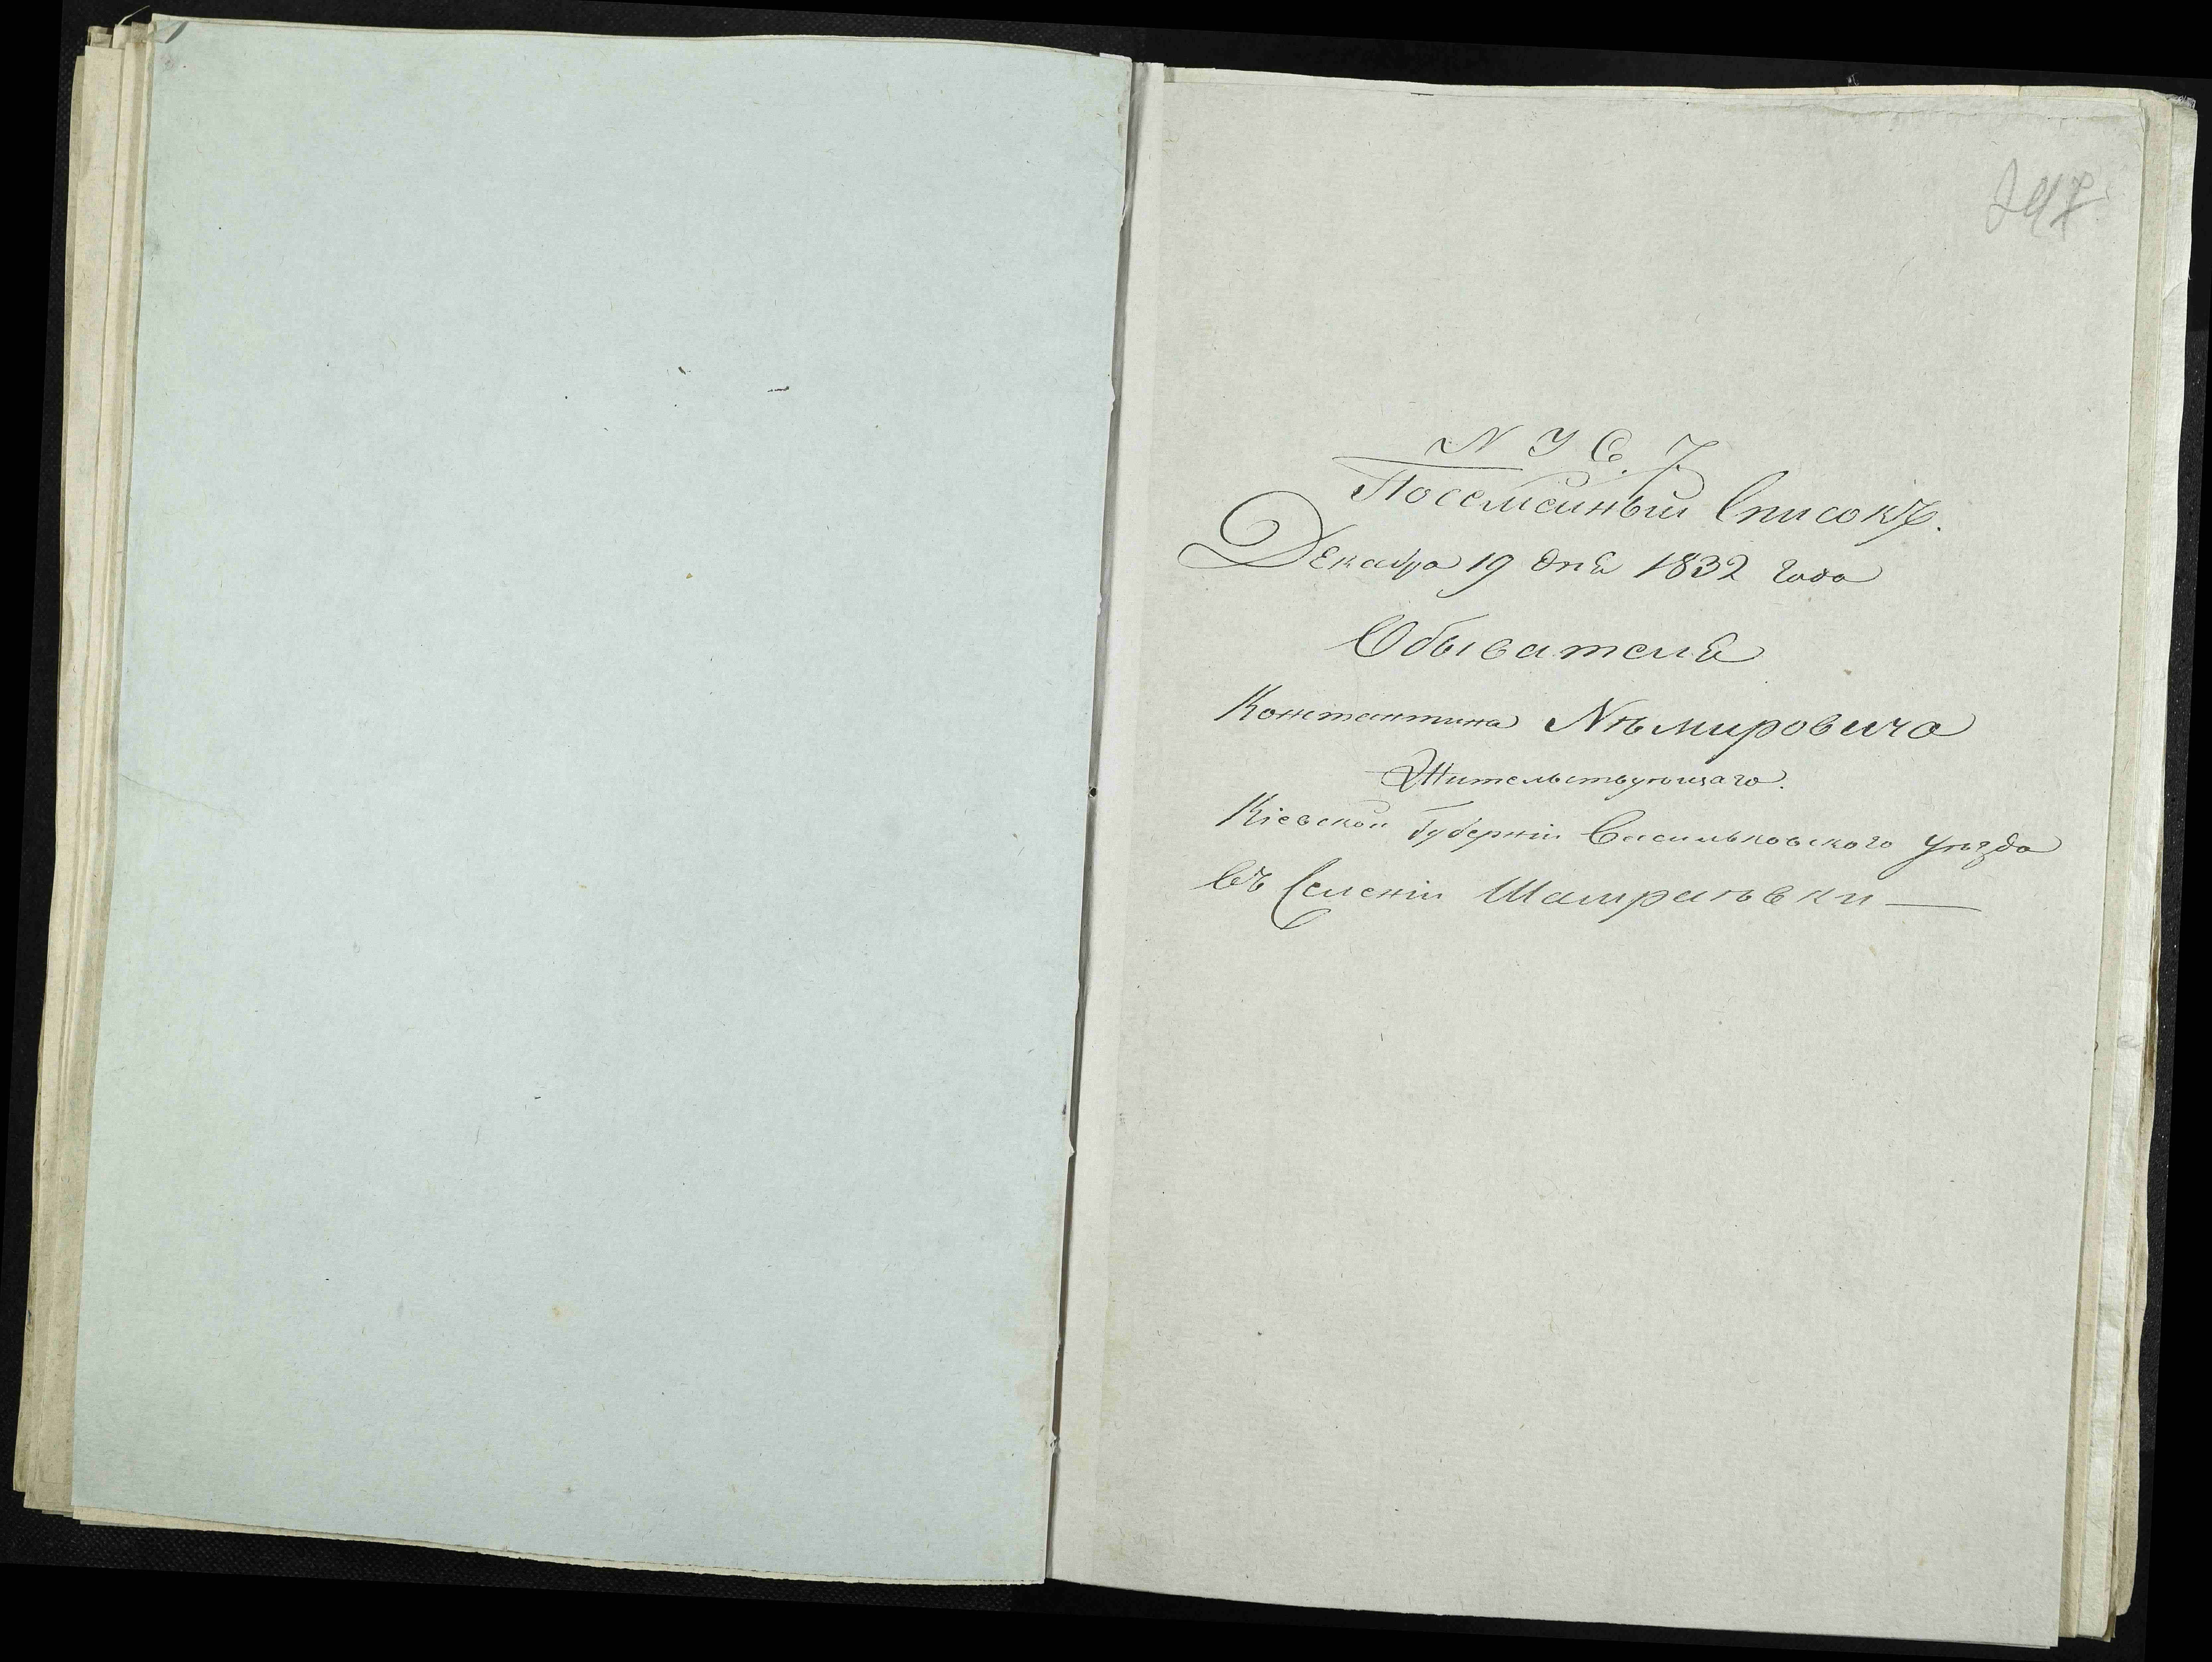 247
N У С. 7.
Посемейный Списокъ.
Декабря 19 дня 1832 года
Обывателя
Константина Нѣмировича
Жительствующаго.
Кіевской Губерніи Васильковского уѣзда
въ Селеніи Шамраевки —